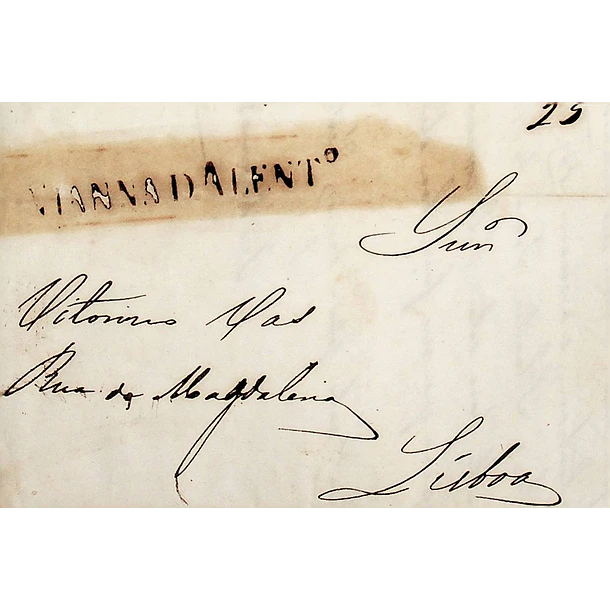 25
VIANNA D ALENTº
Snr
Vitorino Vas
Rua da Magdalena
Lisboa